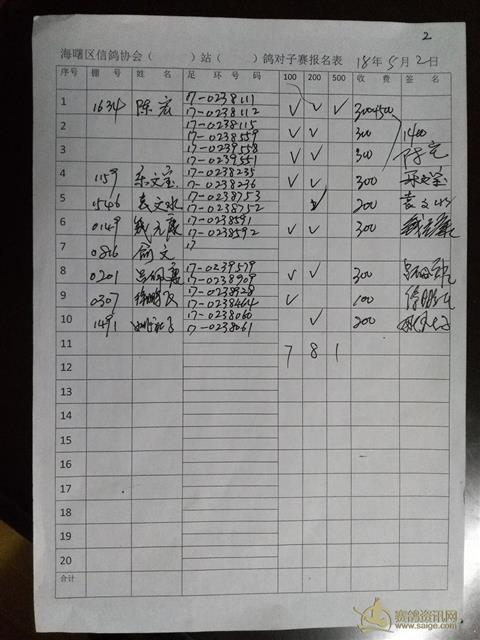 2
海曙区信鸽协会（ ）站（ ）鸽对子赛报名表 18年5月2日
序号 棚号 姓名 足环号码 100 200 500 收费 签名
1 1634 陈宏 17-0238111 17-0238112 ✓ ✓ ✓ 300+500
2 17-0238115 17-0238559 ✓ ✓ 300 1400
3 17-0239558 17-0239551 ✓ ✓ 300 陈宏
4 1159 乐文宝 17-0238235 17-0238236 ✓ ✓ 300 乐文宝
5 0546 袁文水 17-0238753 17-0238752 ✓ 200 袁文水
6 0149 钱元康 17-0238591 17-0238592 ✓ ✓ 300 钱元康
7 0866 俞文 17
8 0201 17-0239579 17-0238909 ✓ ✓ 300
9 0307 17-0238928 17-0238464 ✓ 100
10 1491 17-0238060 17-0238061 ✓ 200
11 7 8 1
12
13
14
15
16
17
18
19
20
合计
赛鸽资讯网
www.saige.com